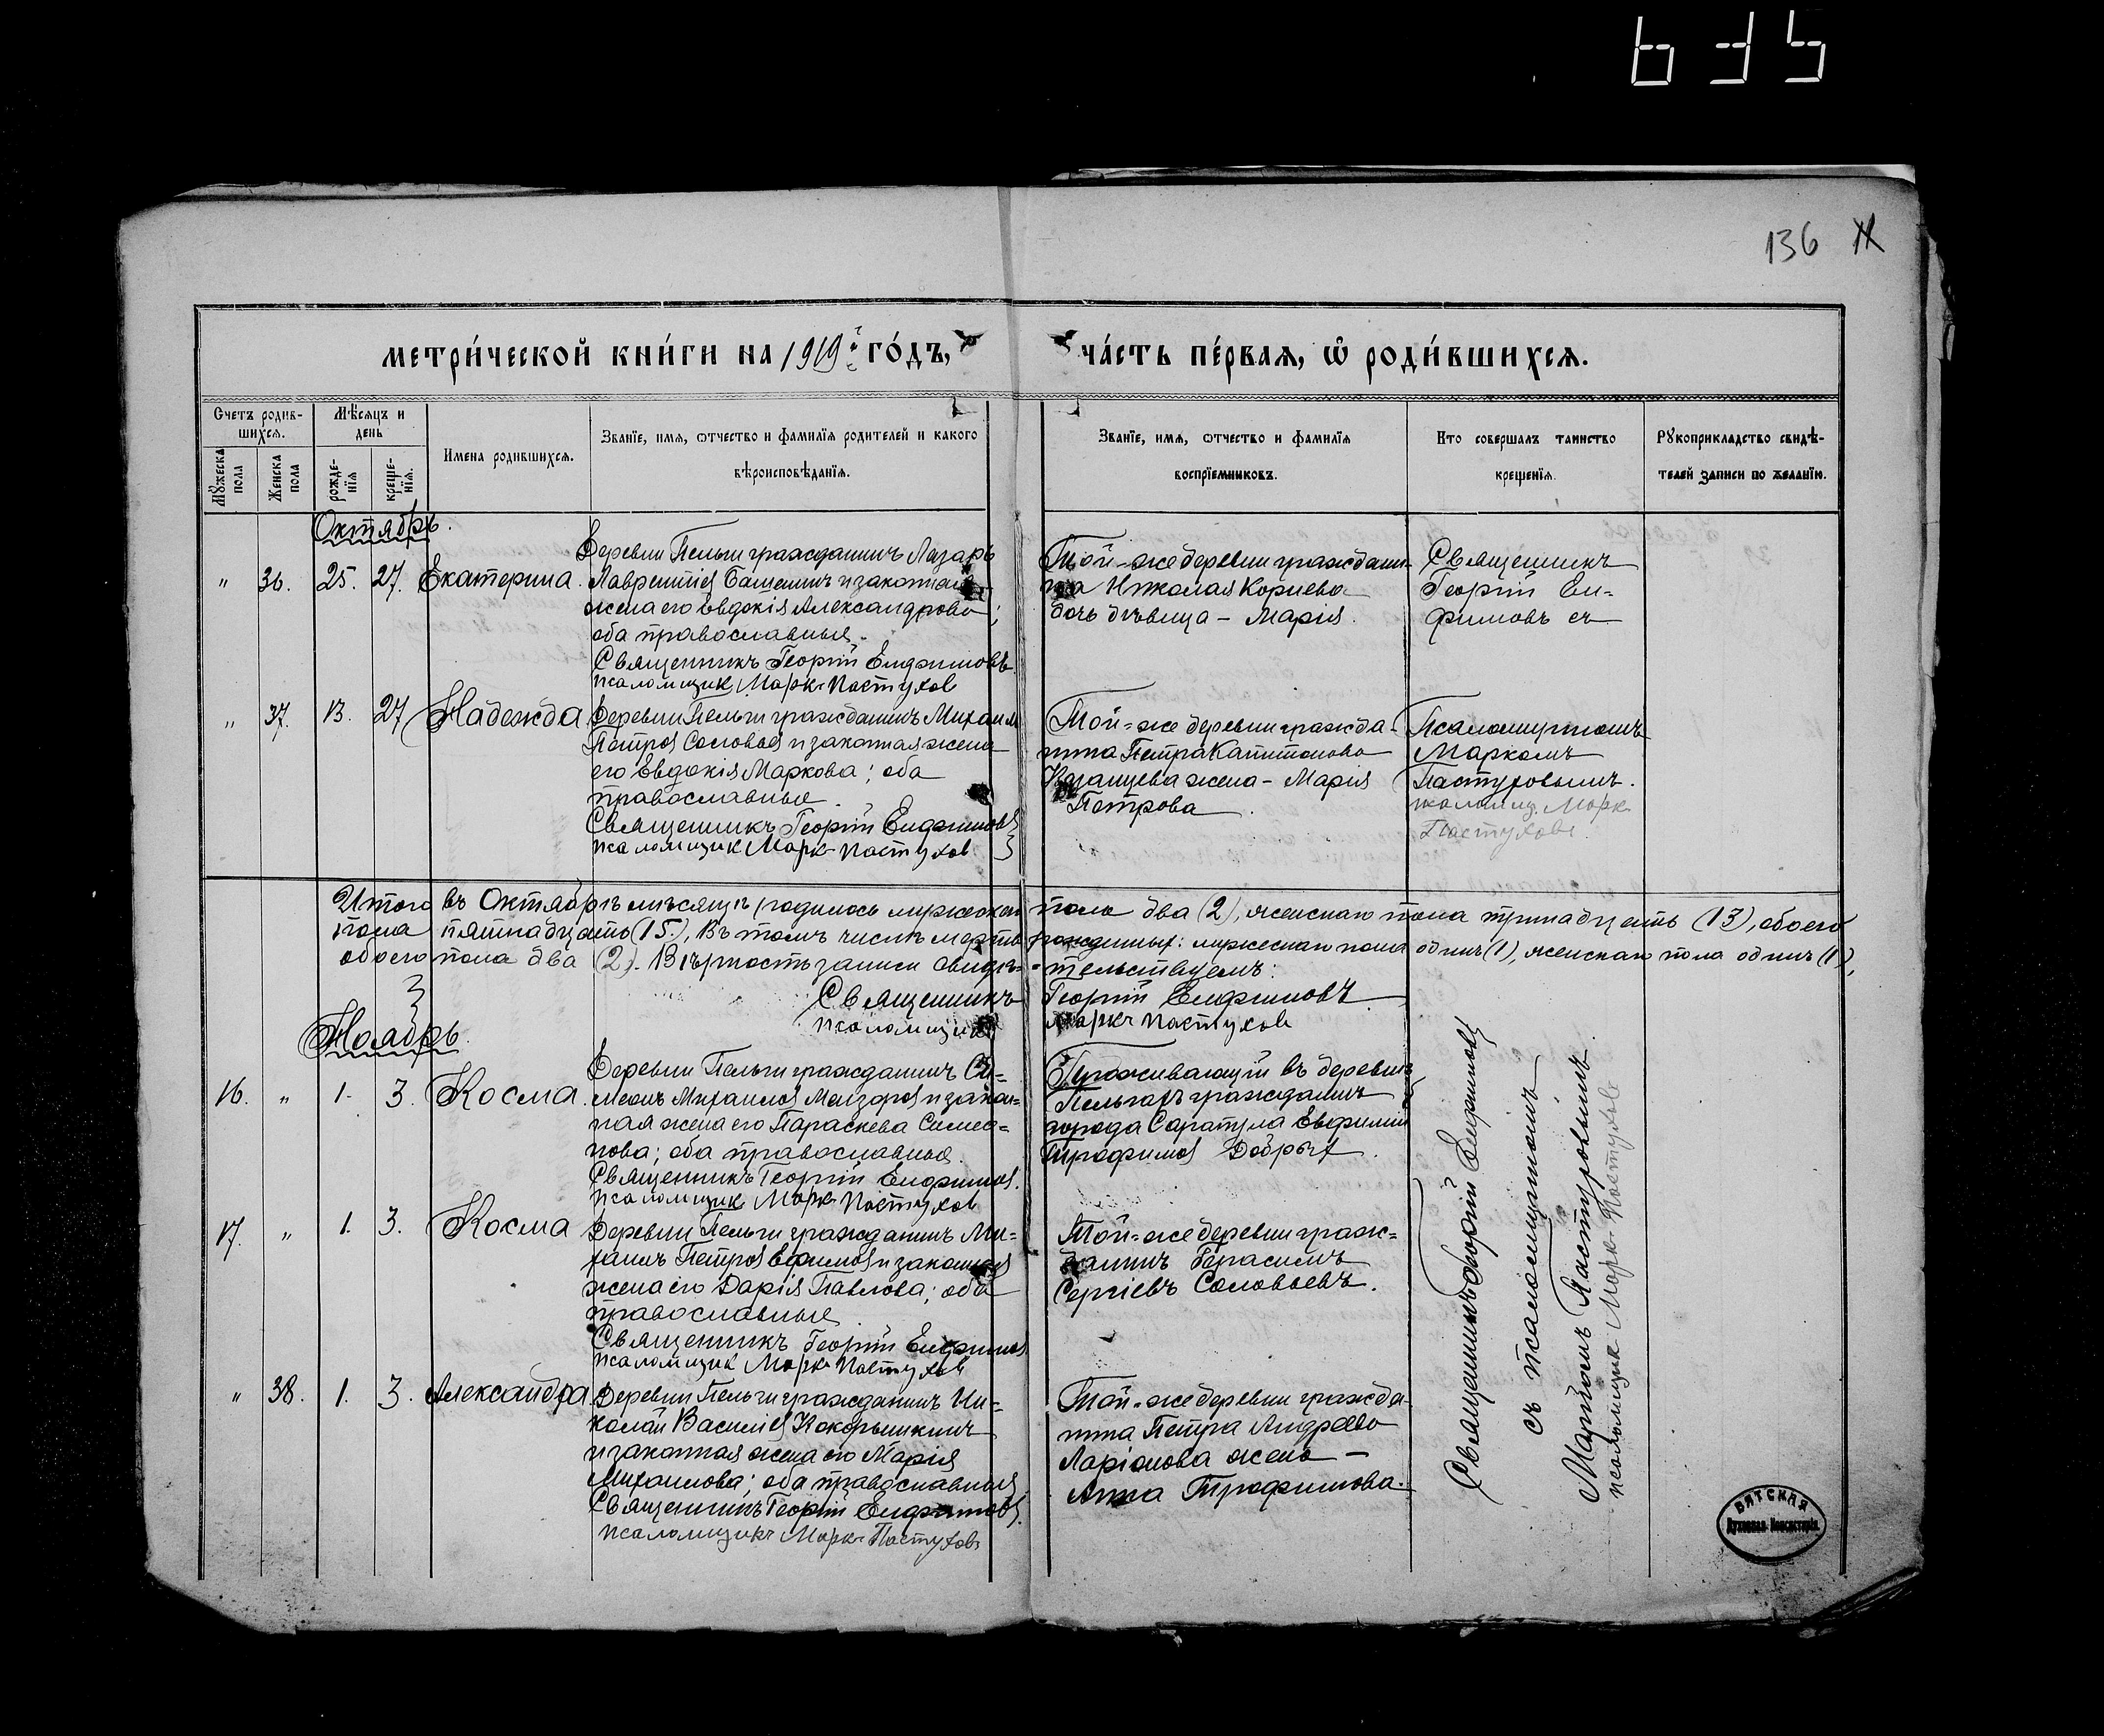 635
136
метри́ческой кни́ги на 1919й го́дъ,
ча́сть пе́рвая, ѡ҆ роди́вшихсѧ.
Счетъ родив-
шихсѧ.
Мѣсѧцъ и
день
Мꙋжеска
пола
Женска
пола
рожде-
нїѧ
креще-
нїѧ.
Имена родившихсѧ.
Званїе, имѧ, ѿчество и фамилїѧ родителей и какого
вѣроисповѣданїѧ.
Званїе, имѧ, ѿчество и фамилїѧ
воспрїемниковъ.
Кто совершалъ таинство
крещенїѧ.
Рꙋкоприкладство свидѣ-
телей записи по желанїю.
Октябрь.
" 36. 25. 27. Екатерина.
Деревни Пельги гражданинъ Лазарь
Лаврентіев Башенинъ и законная
жена его Евдокія Александрова;
оба православные.
Священникъ Георгій Елифимовъ.
псаломщик Маркъ Пастухов
Той-же деревни граждани-
на Николая Корнева
дочь дѣвица - Марія.
Священникъ
Георгій Ели-
фимовъ съ
" 37. 13. 27 Надежда
Деревни Пельги гражданинъ Михаил
Петров Соловьев и законная жена
его Евдокія Маркова; оба
православные.
Священникъ Георгій Елифимовъ
псаломщик Маркъ Пастухов
Той-же деревни гражда-
нина Петра Капитонова
Казанцева жена - Марія
Петрова.
Псаломщикомъ
Маркомъ
Пастуховымъ.
псаломщ. Марк
Пастухов
Итого въ Октябрѣ мѣсяцѣ родилось мужеска пола два (2), женскаго пола тринадцать (13), обоего
пола пятнадцать (15), въ томъ числѣ мертворожденных: мужескаго пола одинъ (1), женскаго пола одинъ (1),
обоего пола два (2). Вѣрность записи свидѣтельствуемъ:
Священникъ Георгій Елифимовъ
псаломщикъ Маркъ Пастухов
Ноябрь.
16. " 1. 3. Косма.
Деревни Пельги гражданинъ Си-
меонъ Михаилов и закон-
ная жена его Параскева Симео-
нова; оба православные.
Священникъ Георгій Елифимов.
псаломщик Маркъ Пастухов
Проживающій въ деревнѣ
Пельгахъ гражданинъ
города Сарапула Евфимій
Трофимов Добрых.
17. " 1. 3. Косма
Деревни Пельги гражданинъ Ми-
хаилъ Петров Ефимов и законная
жена его Дарія Павлова; оба
православные
Священникъ Георгій Елифимов
псаломщик Маркъ Пастухов
Той-же деревни граж-
данинъ Герасимъ
Сергіевъ Соловьевъ.
" 38. 1. 3. Александра.
Деревни Пельги гражданинъ Ни-
колай Василіев Кокорышкинъ
и законная жена его Марія
Михаилова; оба православные.
Священникъ Георгій Елифимовъ.
псаломщикъ Маркъ Пастухов
Той-же деревни гражда-
нина Петра Андреева
Ларіонова жена -
Анна Трофимова.
Священникъ Георгій Елифимовъ
съ псаломщикомъ
Маркомъ Пастуховымъ.
псаломщик Марк Пастухов
ВЯТСКАЯ
Духовная Консисторія